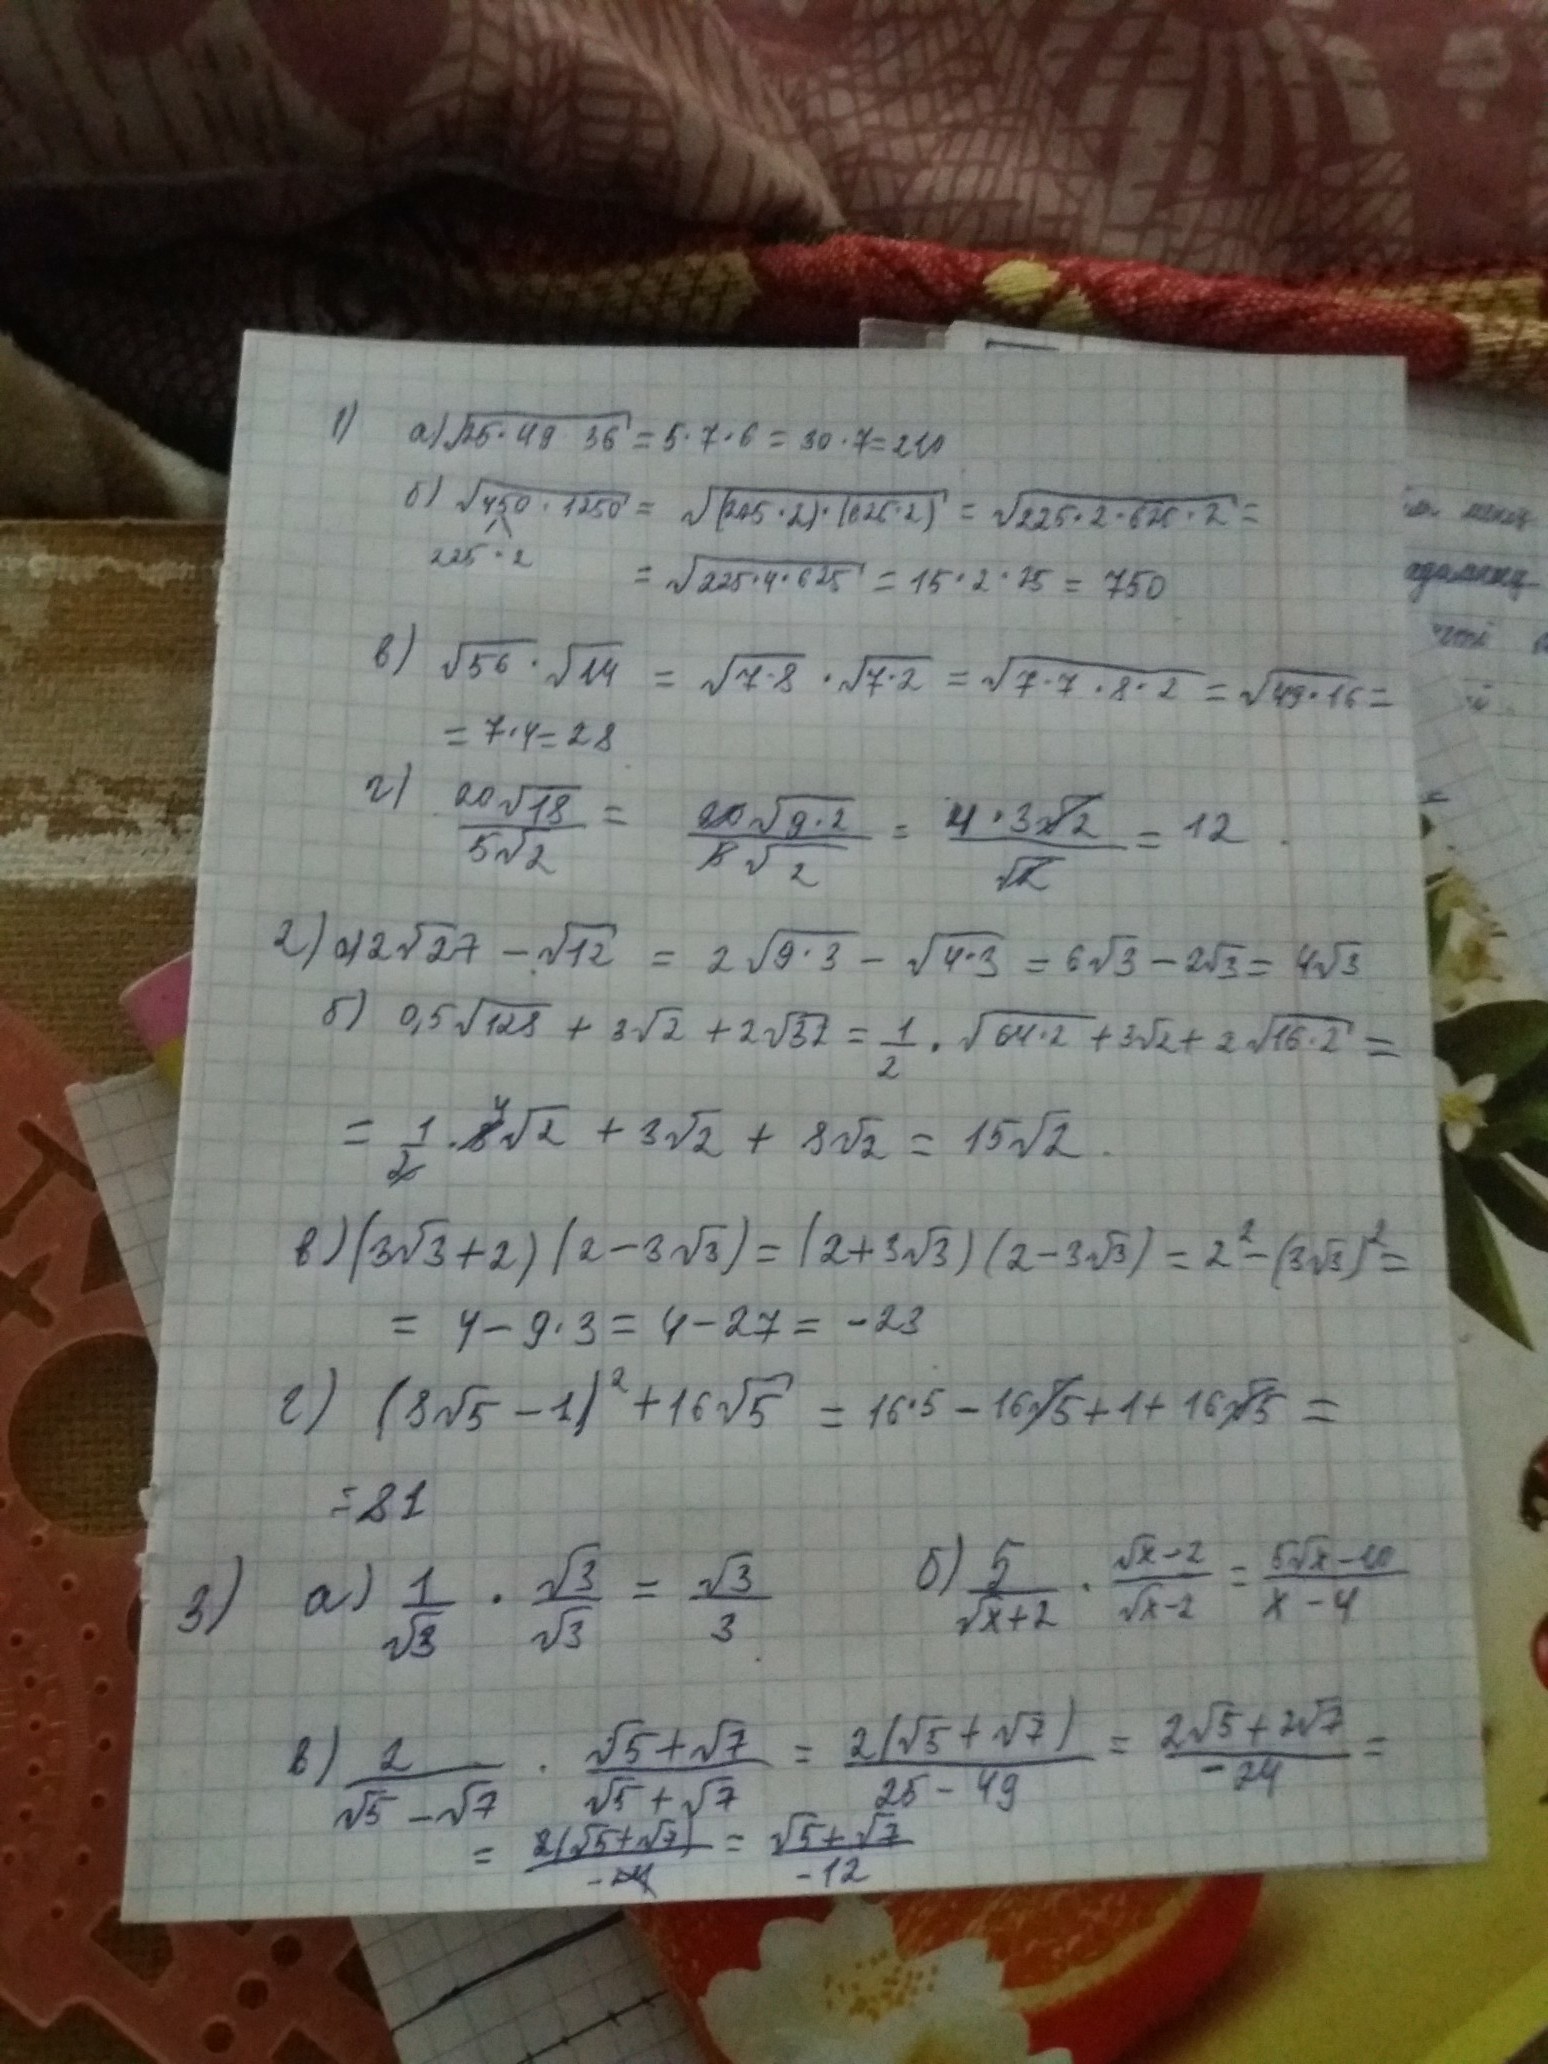 1) а) √25·49·36 = 5·7·6 = 30·7=210
б) √450·1250 = √(225·2)·(625·2) = √225·2·625·2 =
225·2
= √225·4·625 = 15·2·25 = 750
в) √56 · √14 = √7·8 · √7·2 = √7·7·8·2 = √49·16 =
= 7·4=28
г) 20√18/5√2 = 20√9·2/5√2 = 4·3√2/√2 = 12
2) а) 2√27 − √12 = 2√9·3 − √4·3 = 6√3 − 2√3 = 4√3
б) 0,5√128 + 3√2 + 2√32 = 1/2 · √64·2 + 3√2 + 2√16·2 =
= 1/2 · 8 4√2 + 3√2 + 8√2 = 15√2.
в) (3√3+2) (2−3√3) = (2+3√3) (2−3√3) = 2² − (3√3)² =
= 4−9·3 = 4−27 = −23
г) (8√5 −1)² + 16√5 = 16·5 − 16√5 + 1 + 16√5 =
= 81
3) а) 1/√3 · √3/√3 = √3/3 б) 5/√x+2 · √x−2/√x−2 = 5√x−10/x−4
в) 2/√5−√7 · √5+√7/√5+√7 = 2(√5+√7)/25−49 = 2√5+2√7/−24 =
= 2(√5+√7)/−24 = √5+√7/−12